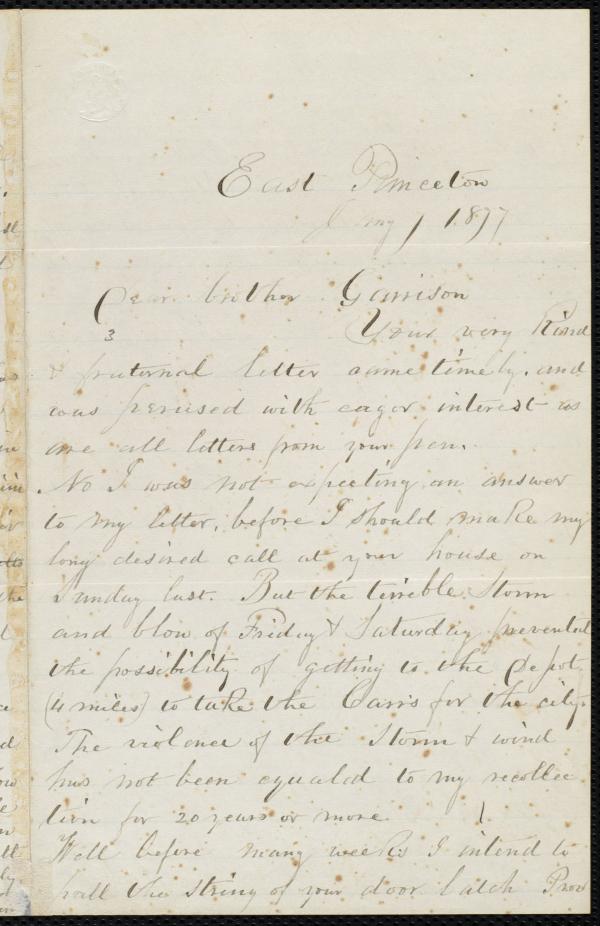 East Princeton
Jany 1 1877
Dear brother Garrison
3
Your very Kind
& fraternal letter came timely, and
was perused with eager interest as
are all letters from your pen.
No I was not expecting an answer
to my letter, before I should make my
long desired call at your house on
Sunday last. But the terrible Storm
and blow of Friday & Saturday prevented
the possibility of getting to the Depot
(4 miles) to take the Carrs for the city.
The violence of the Storm & wind
has not been equaled to my recollec
tion for 20 years or more.
Well before many weeks I intend to
pull the string of your door latch Prov